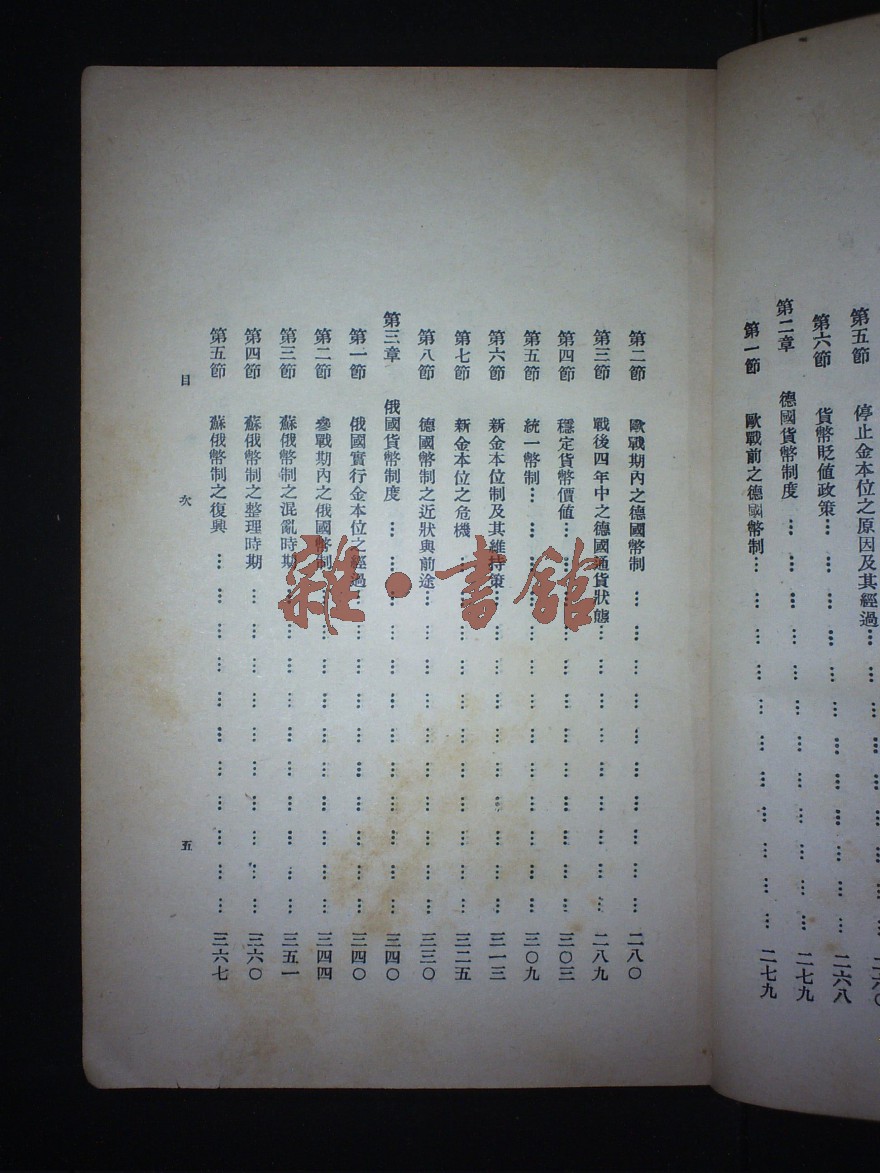 第五節 停止金本位之原因及其經過… … … … … … … 二六〇
第六節 貨幣貶值政策… … … … … … … … … … … … 二六八
第二章 德國貨幣制度 … … … … … … … … … … … … 二七九
第一節 歐戰前之德國幣制… … … … … … … … … … … 二七九
第二節 歐戰期內之德國幣制 … … … … … … … … … … 二八〇
第三節 戰後四年中之德國通貨狀態… … … … … … … … … 二八九
第四節 穩定貨幣價值 … … … … … … … … … … … … 三〇三
第五節 統一幣制… … … … … … … … … … … … … 三〇九
第六節 新金本位制及其維持策… … … … … … … … … … 三一三
第七節 新金本位之危機 … … … … … … … … … … … 三二五
第八節 德國幣制之近狀與前途… … … … … … … … … … 三三〇
第三章 俄國貨幣制度 … … … … … … … … … … … … 三四〇
第一節 俄國實行金本位之經過… … … … … … … … … … 三四〇
第二節 參戰期內之俄國幣制… … … … … … … … … … 三四四
第三節 蘇俄幣制之混亂時期… … … … … … … … … … 三五一
第四節 蘇俄幣制之整理時期 … … … … … … … … … … 三六〇
第五節 蘇俄幣制之復興 … … … … … … … … … … … 三六七
目 次
五
雜·書館